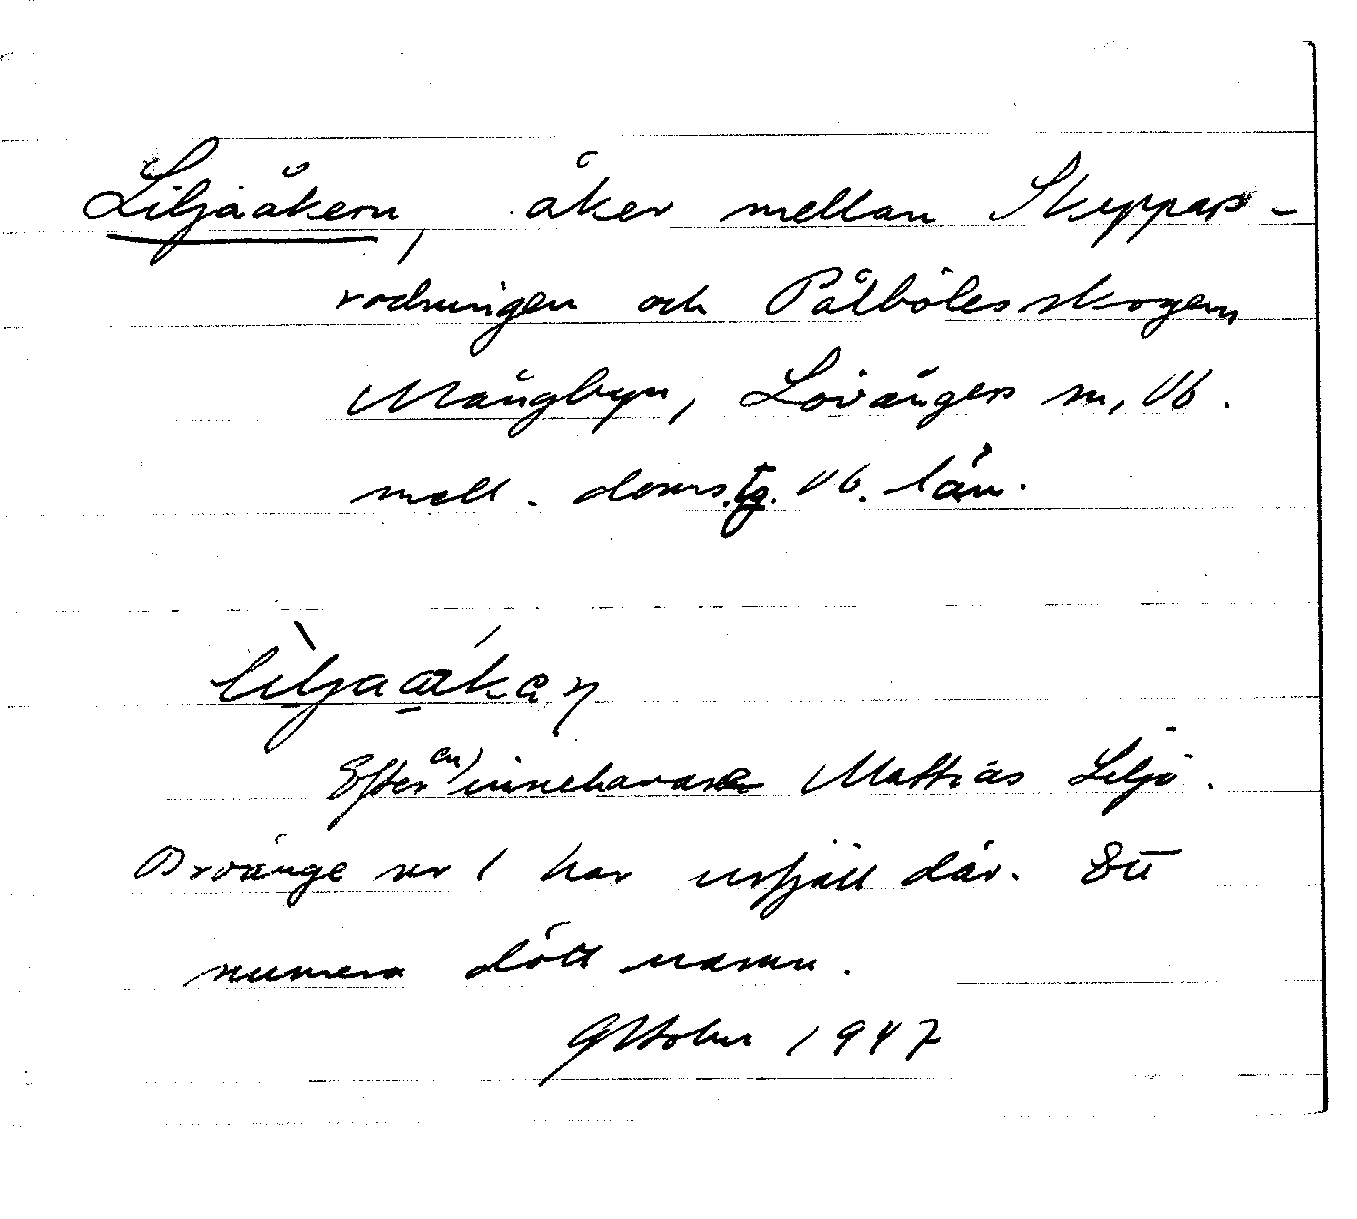 Liljaåkern, åker mellan Skeppars-
rodningen och Pålbölesskogen,
Mångbyn, Lövångers sn, Vb.
mell. doms.tg. Vb. län.
liljaåkaη
Efter en innehavare Mattias Lilja.
Broänge nr 1 har urfjäll där. Ett
numera dött namn.
Oktober 1947